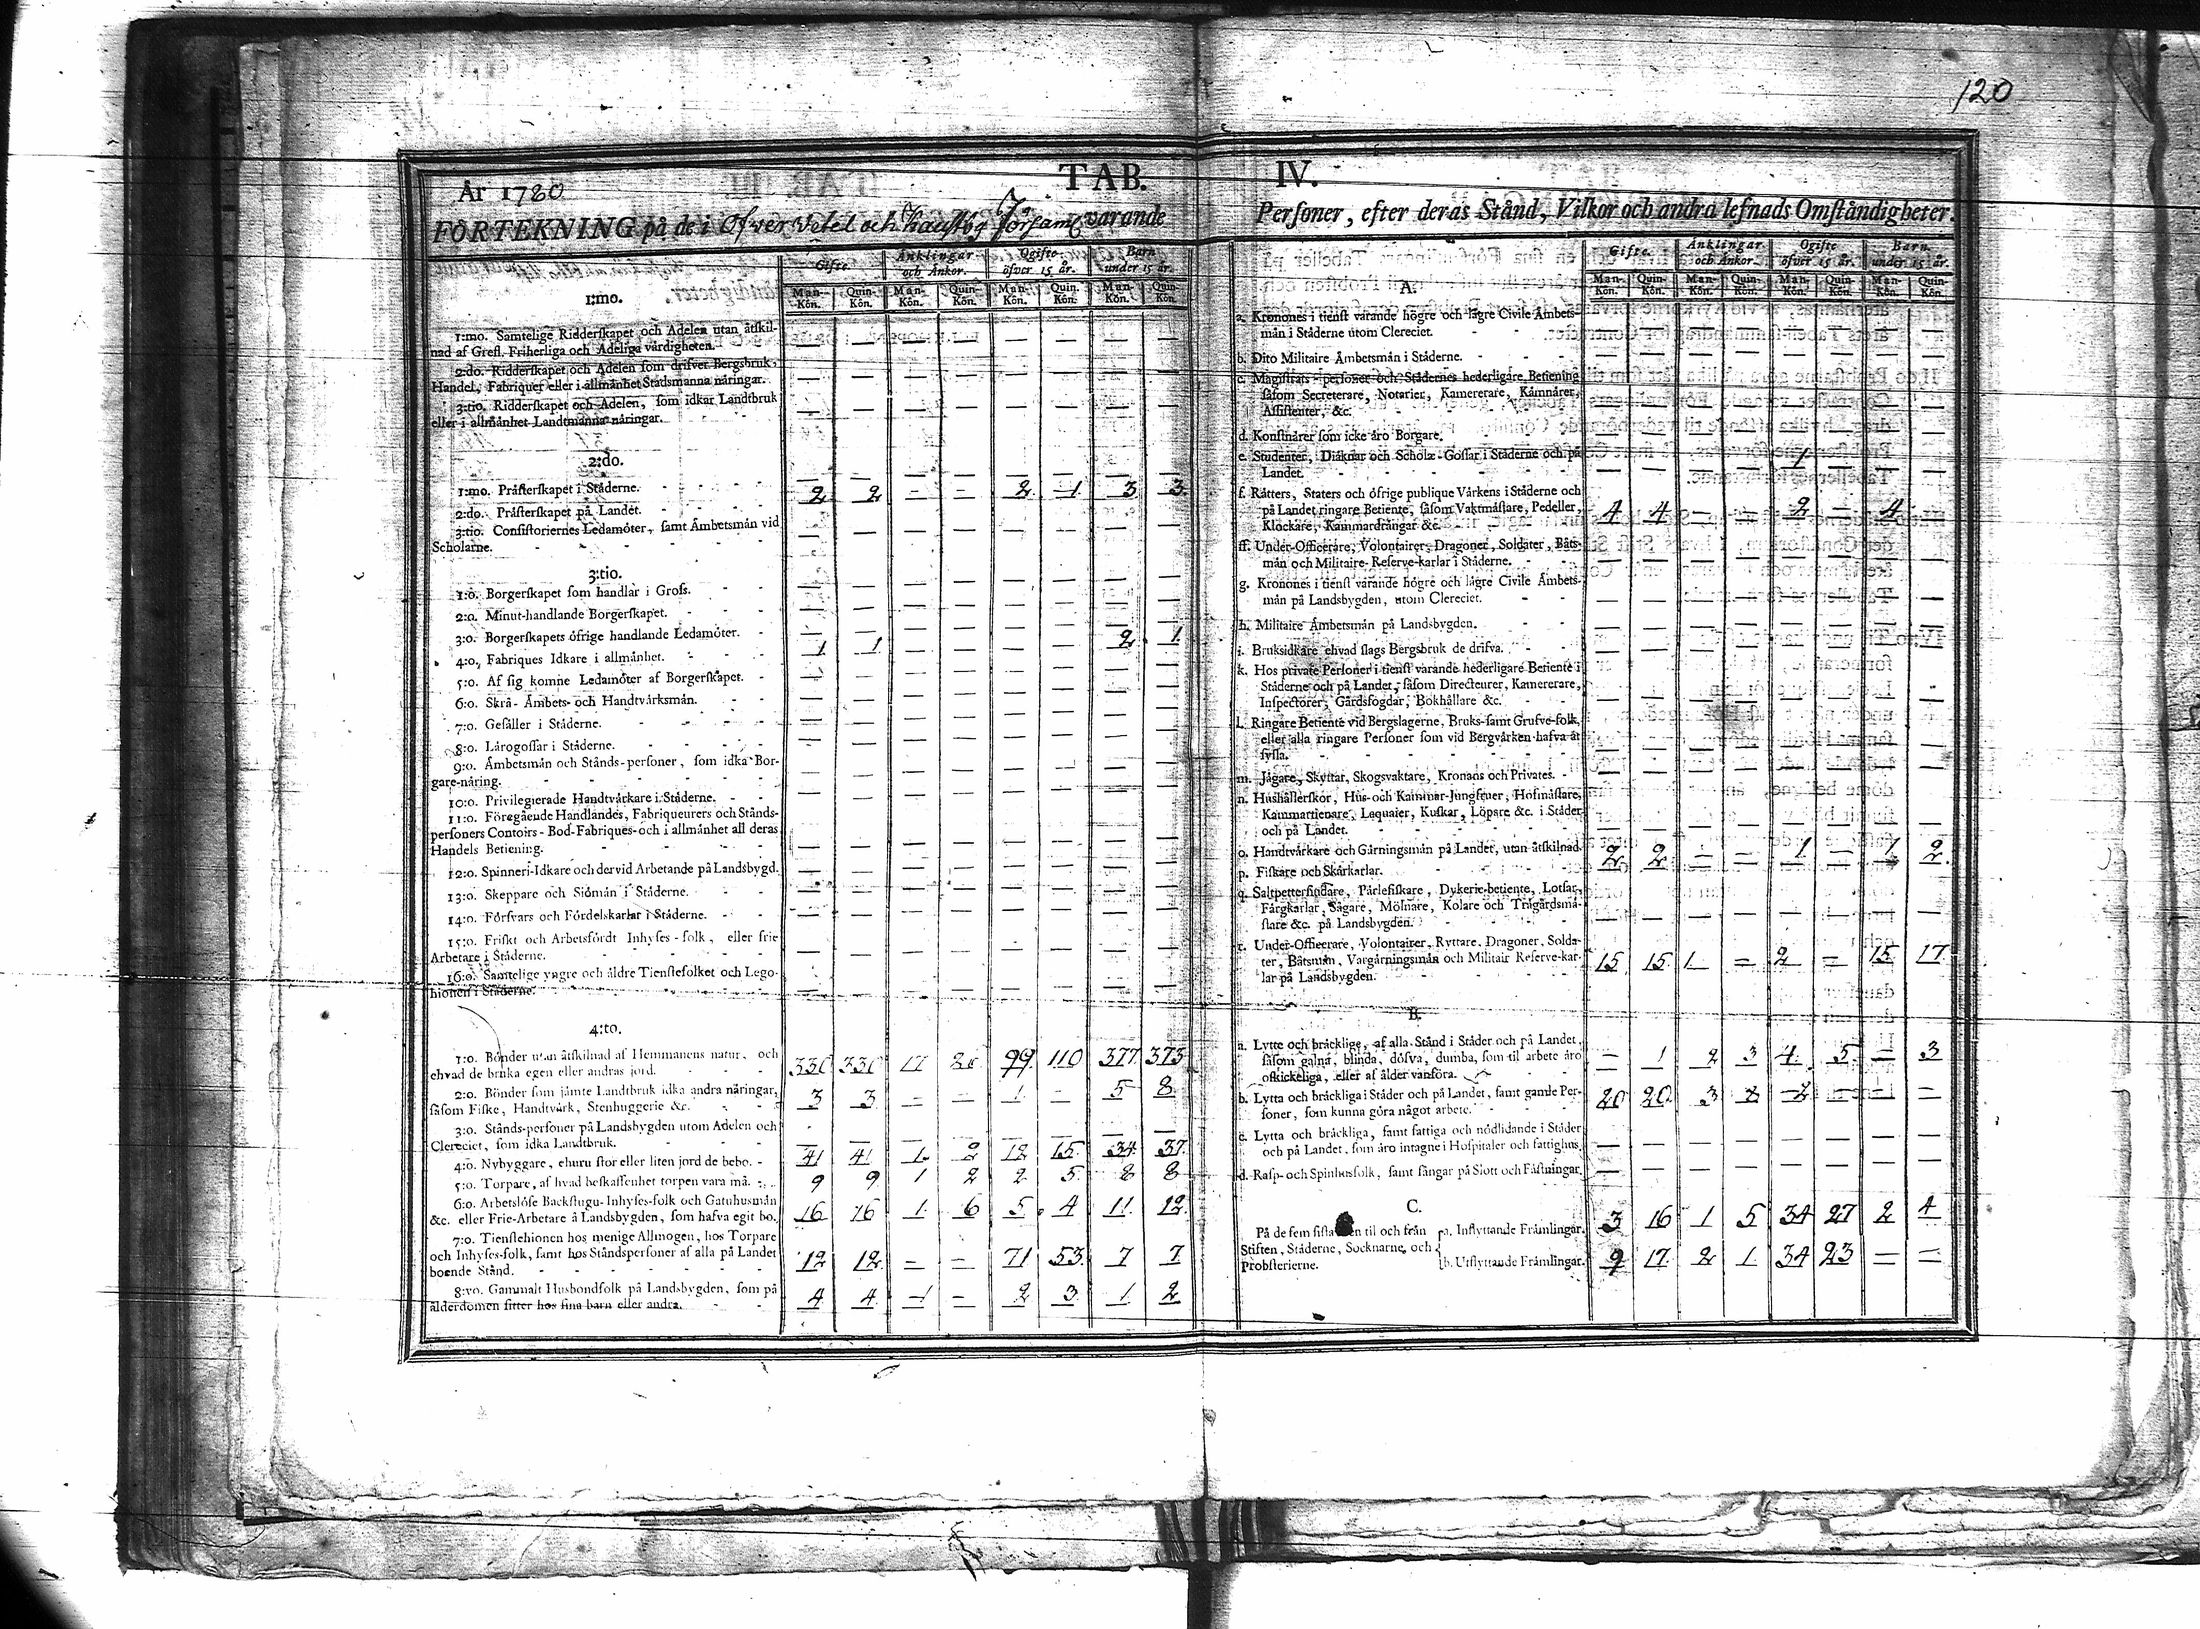 120
TAB. IV.
År 1780
FÖRTEKNING på de i Öfver Vetel och Församl. varande Personer, efter deras Stånd, Vilkor och andra lefnads Omständigheter.
Gifte. Änklingar och Änkor. Ogifte öfver 15 år. Barn under 15 år.
Man-Kön. Quin-Kön. Man-Kön. Quin-Kön. Man-Kön. Quin-Kön. Man-Kön. Quin-Kön.
1:mo.
1:mo. Samtelige Ridderskapet och Adelen utan åtskil-
nad af Grefl. Friherliga och Adeliga värdigheten. — — — — — — — —
2:do. Ridderskapet och Adelen som drifver Bergsbruk,
Handel, Fabriquer eller i allmänhet Stadsmanna näringar. — — — — — — — —
3:tio. Ridderskapet och Adelen, som idkar Landtbruk
eller i allmänhet Landtmanna näringar. — — — — — — — —
2:do.
1:mo. Prästerskapet i Städerne. — — — — — — — —
2:do. Prästerskapet på Landet. 2 2 — — 2 1 3 3
3:tio. Consistoriernes Ledamöter, samt Ämbetsmän vid
Scholarne. — — — — — — — —
3:tio.
1:o. Borgerskapet som handlar i Gross. — — — — — — — —
2:o. Minut-handlande Borgerskapet. — — — — — — — —
3:o. Borgerskapets öfrige handlande Ledamöter. — — — — — — — —
4:o. Fabriques Idkare i allmänhet. 1 1 — — — — 2 1
5:o. Af sig komne Ledamöter af Borgerskapet. — — — — — — — —
6:o. Skrå- Ämbets- och Handtvärksmän. — — — — — — — —
7:o. Gesäller i Städerne. — — — — — — — —
8:o. Lärogossar i Städerne. — — — — — — — —
9:o. Ämbetsmän och Stånds-personer, som idka Bor-
gare-näring. — — — — — — — —
10:o. Privilegierade Handtvärkare i Städerne. — — — — — — — —
11:o. Föregående Handlandes, Fabriqueurers och Stånds-
personers Contoirs- Bod-Fabriques- och i allmänhet all deras
Handels Betiening. — — — — — — — —
12:o. Spinneri-Idkare och der vid Arbetande på Landsbygd. — — — — — — — —
13:o. Skeppare och Siömän i Städerne. — — — — — — — —
14:o. Försvars och Fördelskarlar i Städerne. — — — — — — — —
15:o. Friskt och Arbetsfördt Inhyses-folk, eller frie
Arbetare i Städerne. — — — — — — — —
16:o. Samtelige yngre och äldre Tienstefolket och Lego-
hionen i Städerne. — — — — — — — —
4:to.
1:o. Bönder utan åtskilnad af Hemmanens natur, och
ehvad de bruka egen eller andras jord. 330 330 17 99 110 377 373
2:o. Bönder som jämte Landtbruk idka andra näringar,
såsom Fiske, Handtvärk, Stenhuggerie &c. 3 3 — — 1 — 5 8
3:o. Stånds-personer på Landsbygden utom Adelen och
Clereciet, som idka Landtbruk. — — — — — — — —
4:o. Nybyggare, ehuru stor eller liten jord de bebo. 41 41 1 2 12 15 34 37
5:o. Torpare, af hvad beskaffenhet torpen vara må. 9 9 1 2 2 5 8 8
6:o. Arbetslöse Backstugu- Inhyses-folk och Gatuhusmän
&c. eller Frie-Arbetare å Landsbygden, som hafva egit bo. 16 16 1 6 5 4 11 12
7:o. Tienstehionen hos menige Allmogen, hos Torpare
och Inhyses-folk, samt hos Ståndspersoner af alla på Landet
boende Stånd. 12 12 — — 71 53 7 7
8:vo. Gammalt Husbondfolk på Landsbygden, som på
ålderdomen sitter hos sina barn eller andra. 4 4 1 — 2 3 1 2
Gifte. Änklingar och Änkor. Ogifte öfver 15 år. Barn under 15 år.
Man-Kön. Quin-Kön. Man-Kön. Quin-Kön. Man-Kön. Quin-Kön. Man-Kön. Quin-Kön.
A.
a. Kronones i tienst varande högre och lägre Civile Ämbets-
män i Städerne utom Clereciet. — — — — — — — —
b. Dito Militaire Ämbetsmän i Städerne. — — — — — — — —
c. Magistrats-personer och Städernes hederligare Betiening
såsom Secreterare, Notarier, Kamererare, Kämnärer,
Assistenter, &c. — — — — — — — —
d. Konstnärer som icke äro Borgare. — — — — — — — —
e. Studenter, Diäknar och Scholæ-Gossar i Städerne och på
Landet. — — — — 1 — — —
f. Rätters, Staters och öfrige publique Värkens i Städerne och
på Landet ringare Betiente, såsom Vaktmästare, Pedeller,
Klockare, Kammardrängar &c. 4 4 — — 2 — 4 —
ff. Under-Officerare, Volontairer, Dragoner, Soldater, Båts-
män och Militaire-Reserve-karlar i Städerne. — — — — — — — —
g. Kronones i tienst varande högre och lägre Civile Ämbets-
män på Landsbygden, utom Clereciet. — — — — — — — —
h. Militaire Ämbetsmän på Landsbygden. — — — — — — — —
i. Bruksidkare ehvad slags Bergsbruk de drifva. — — — — — — — —
k. Hos private Personer i tienst varande hederligare Betiente i
Städerne och på Landet, såsom Directeurer, Kamererare,
Inspectorer, Gårdsfogdar, Bokhållare &c. — — — — — — — —
l. Ringare Betiente vid Bergslagerne, Bruks- samt Grufve-folk,
eller alla ringare Personer som vid Bergvärken hafva at
syssla. — — — — — — — —
m. Jägare, Skyttar, Skogsvaktare, Kronans och Privates. — — — — — — — —
n. Hushållerskor, Hus- och Kammar-Jungfruer, Hofmästare,
Kammartienare, Laquaier, Kuskar, Löpare &c. i Städer
och på Landet. — — — — — — — —
o. Handtvärkare och Gärningsmän på Landet, utan åtskilnad. 2 2 — — 1 — 1 2
p. Fiskare och Skärkarlar. — — — — — — — —
q. Saltpettersiudare, Pärlefiskare, Dykerie-betiente, Lotsar,
Färgkarlar, Sågare, Mölnare, Kolare och Trägårdsmä-
stare &c. på Landsbygden. — — — — — — — —
r. Under-Officerare, Volontairer, Ryttare, Dragoner, Solda-
ter, Båtsmän, Vargärningsmän och Militair Reserve-kar-
lar på Landsbygden. 15 15 1 — 2 — 15 17
B.
a. Lytte och bräcklige, af alla Stånd i Städer och på Landet,
såsom galna, blinda, döfva, dumba, som til arbete äro
oskickeliga, eller af ålder vanföra. — 1 2 3 4 5 — 3
b. Lytta och bräckliga i Städer och på Landet, samt gamle Per-
soner, som kunna göra något arbete. 20 20 3 — —
c. Lytta och bräckliga, samt fattiga och nödlidande i Städer
och på Landet, som äro intagne i Hospitaler och fattighus. — — — — — — — —
d. Rasp- och Spinhusfolk, samt fångar på Slott och Fästningar. — — — — — — — —
C.
På de fem sista til och från
Stiften, Städerne, Socknarne, och
Probsterierne.
a. Inflyttande Främlingar. 3 16 1 5 34 27 2 4
b. Utflyttande Främlingar. 9 17 2 1 34 23 — —